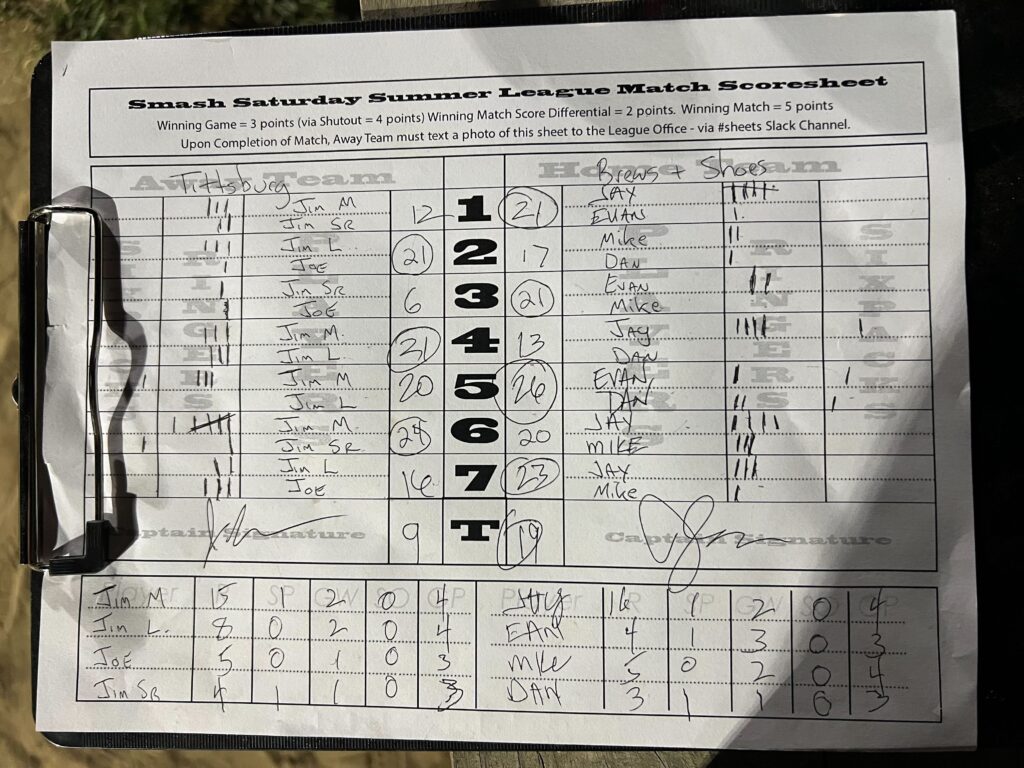 Smash Saturday Summer League Match Scoresheet
Winning Game = 3 points (via Shutout = 4 points) Winning Match Score Differential = 2 points. Winning Match = 5 points
Upon Completion of Match, Away Team must text a photo of this sheet to the League Office - via #sheets Slack Channel.
Away Team Home Team
Tittsburg Brews + Shoes
Jim M 12 1 21 JAY
Jim SR EVAN
Jim L 21 2 17 Mike
JOE DAN
Jim SR 6 3 21 EVAN
JOE Mike
Jim M. 21 4 13 JAY
Jim L. DAN
Jim M 20 5 26 EVAN
Jim L DAN
Jim M. 6 20 JAY
Jim SR MIKE
Jim L 16 7 23 JAY
JOE Mike
RINGERS PLAYERS RINGERS SIXPACKS
Captain Signature 9 T 19 Captain Signature
Player SP GW SO GP Player R SP GW SO GP
Jim M. 15 1 2 0 4 JAY 16 1 2 0 4
Jim L. 8 0 2 0 4 EAN 4 1 3 0 3
JOE 5 0 1 0 3 MIKE 5 0 2 0 4
Jim SR 4 1 1 0 3 DAN 3 1 1 0 3